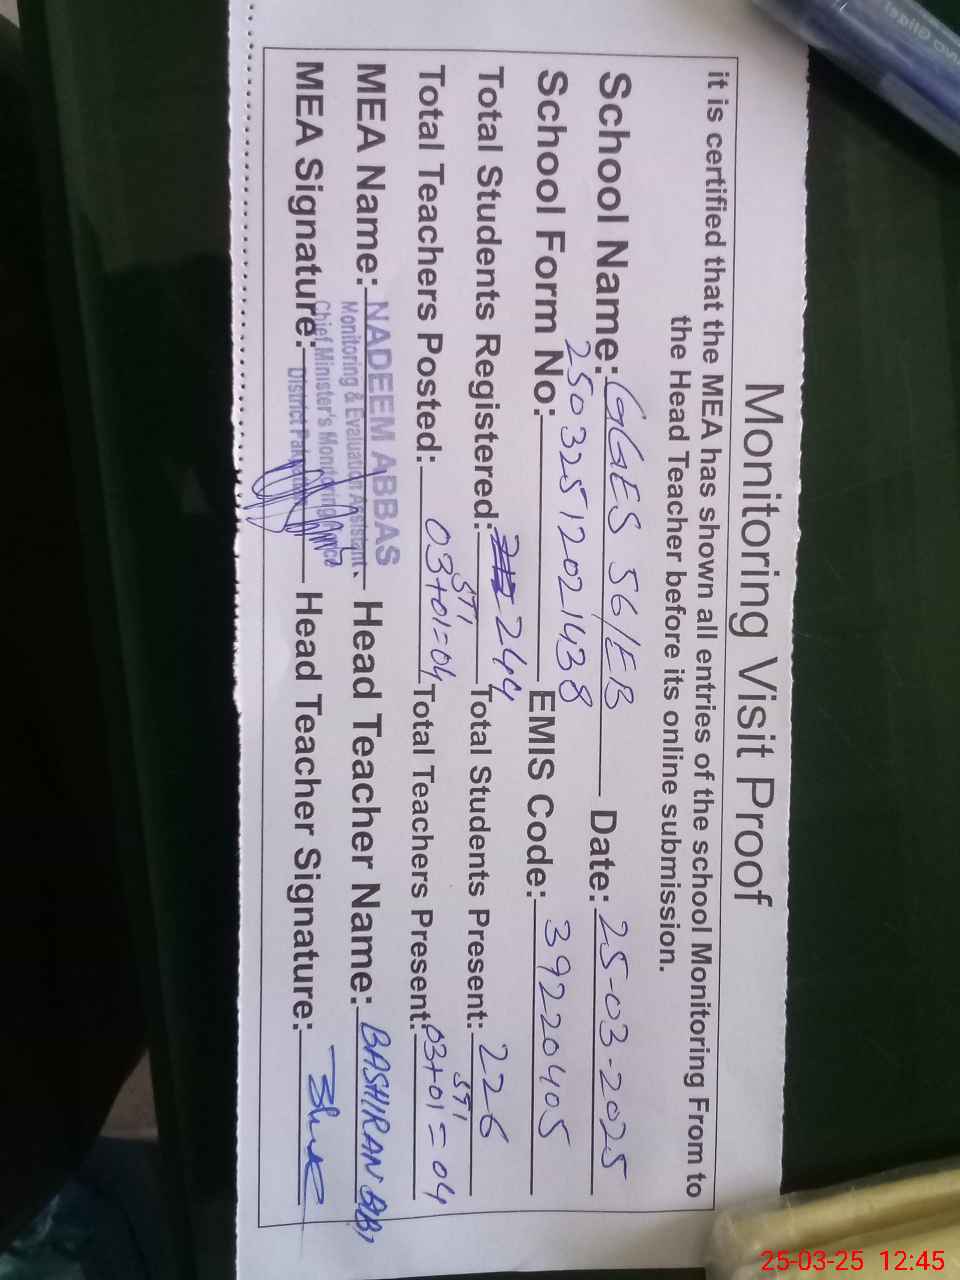 Monitoring Visit Proof
it is certified that the MEA has shown all entries of the school Monitoring From to
the Head Teacher before its online submission.
School Name: GGES 56/EB Date: 25-03-2025
School Form No: 25032512021438 EMIS Code: 39220405
Total Students Registered: 244 Total Students Present: 226
Total Teachers Posted: 03+01=04 Total Teachers Present: 03+01=04
STI STI
MEA Name: NADEEM ABBAS Head Teacher Name: BASHIRAN BIBI
Monitoring & Evaluation Assistant
Chief Minister's Monitoring Force
MEA Signature: District Head Teacher Signature:
25-03-25 12:45